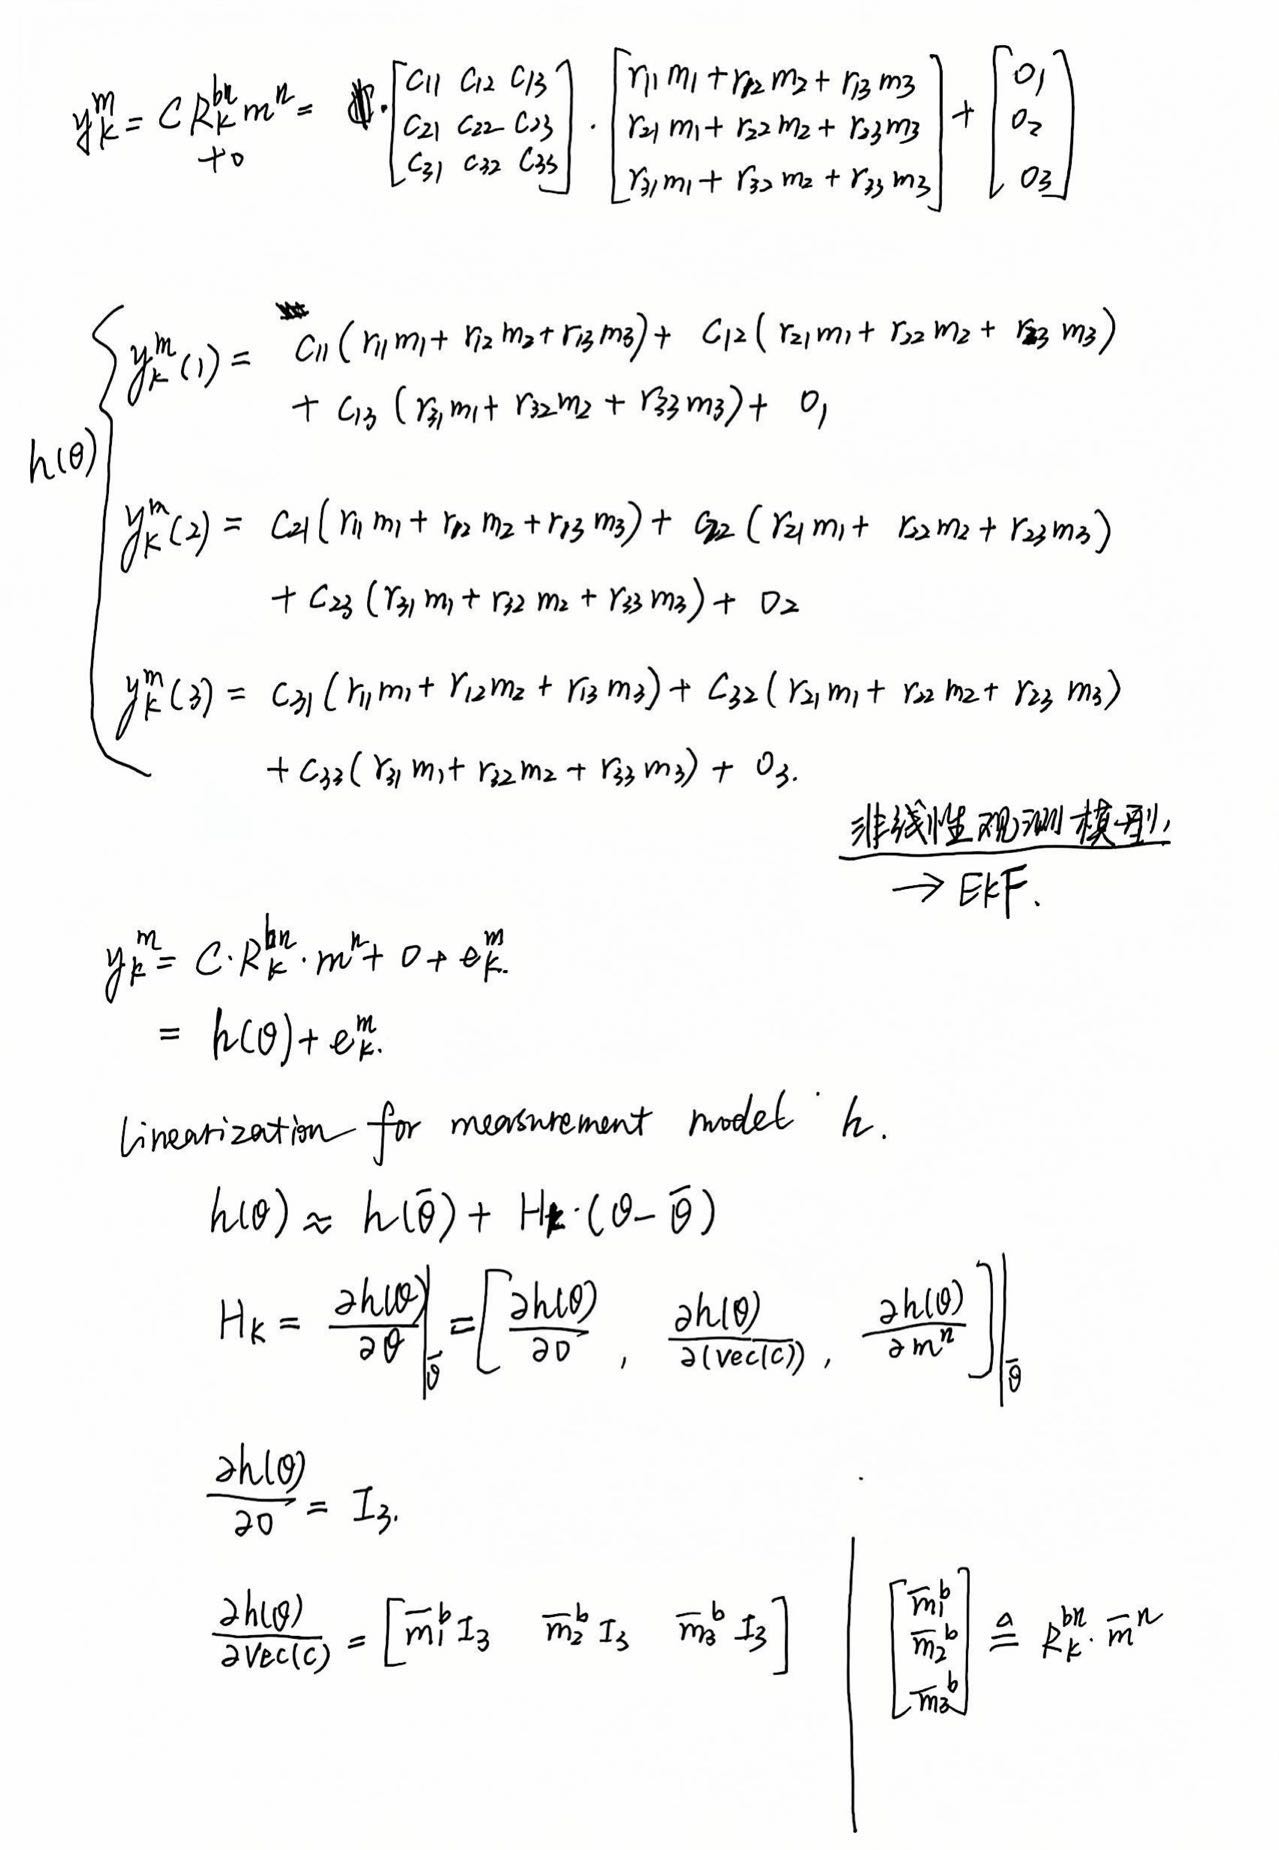 y_k^m = C R_k^{bn} m^n + o = · [c11 c12 c13; c21 c22 c23; c31 c32 c33] · [r11 m1 + r12 m2 + r13 m3; r21 m1 + r22 m2 + r23 m3; r31 m1 + r32 m2 + r33 m3] + [o1; o2; o3]
h(θ) {
y_k^m(1) = c11 (r11 m1 + r12 m2 + r13 m3) + c12 (r21 m1 + r22 m2 + r23 m3)
+ c13 (r31 m1 + r32 m2 + r33 m3) + o1
y_k^m(2) = c21 (r11 m1 + r12 m2 + r13 m3) + c22 (r21 m1 + r22 m2 + r23 m3)
+ c23 (r31 m1 + r32 m2 + r33 m3) + o2
y_k^m(3) = c31 (r11 m1 + r12 m2 + r13 m3) + c32 (r21 m1 + r22 m2 + r23 m3)
+ c33 (r31 m1 + r32 m2 + r33 m3) + o3.
非线性观测模型,
→ EKF.
y_k^m = C · R_k^{bn} · m^n + o + e_k^m.
= h(θ) + e_k^m.
linearization for measurement model h.
h(θ) ≈ h(θ̄) + H_k · (θ − θ̄)
H_k = ∂h(θ)/∂θ |_θ̄ = [∂h(θ)/∂o , ∂h(θ)/∂(vec(C)) , ∂h(θ)/∂m^n] |_θ̄
∂h(θ)/∂o = I3.
∂h(θ)/∂vec(C) = [m̄1^b I3 m̄2^b I3 m̄3^b I3]
[m̄1^b; m̄2^b; m̄3^b] ≜ R_k^{bn} · m̄^n